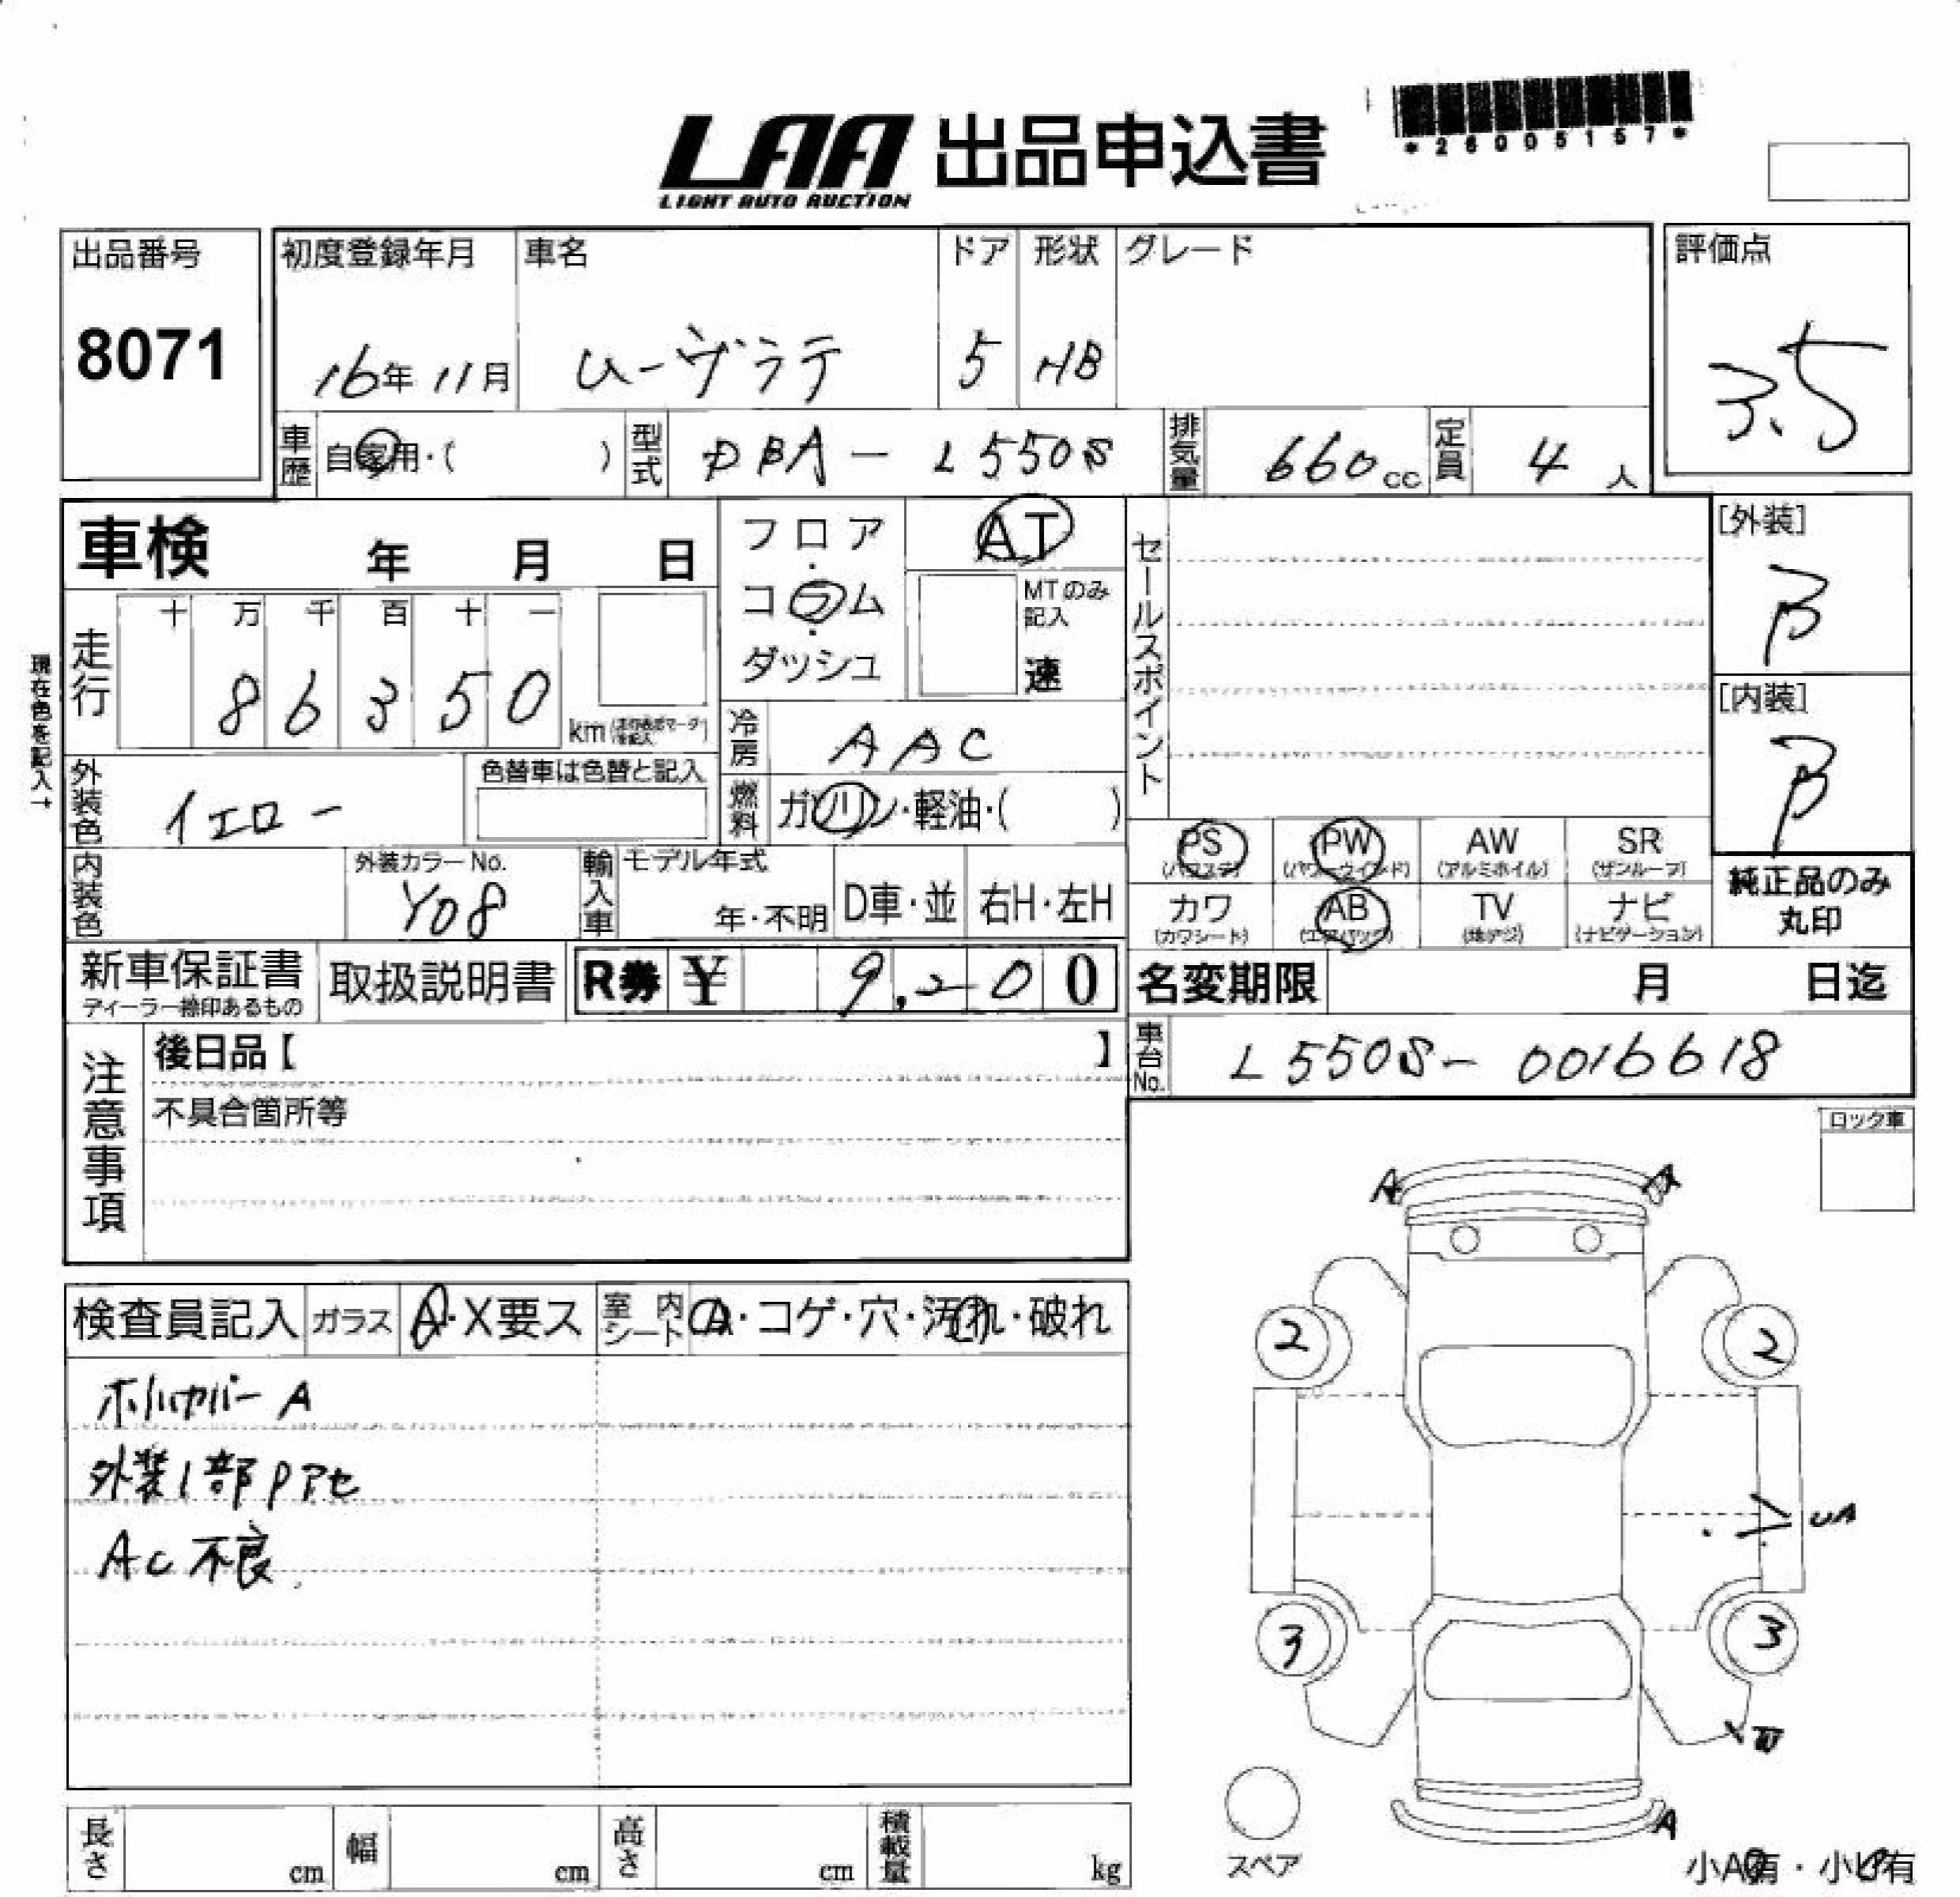 LAA 出品申込書
LIGHT AUTO AUCTION
*26005157*
出品番号
8071
初度登録年月 車名 ドア 形状 グレード
16年 11月 ムーヴラテ 5 HB
評価点
3.5
車歴 自家用・( ) 型式 DBA-L550S 排気量 660cc 定員 4人
車検 年 月 日
フロア・コラム・ダッシュ
AT
MTのみ記入
速
セールスポイント
[外装]
B
[内装]
B
現在色を記入→
走行 十 万 千 百 十 一
8 6 3 5 0
km
冷房 AAC
外装色 イエロー
色替車は色替と記入
燃料 ガソリン・軽油・( )
内装色
外装カラーNo.
Y08
輸入車 モデル年式
年・不明 D車・並 右H・左H
PS PW AW SR
(パワステ) (パワーウインド) (アルミホイル) (サンルーフ)
カワ AB TV ナビ
(カワシート) (エアバック) (地デジ) (ナビゲーション)
純正品のみ
丸印
新車保証書
ディーラー捺印あるもの
取扱説明書
R券 ¥ 9,200
名変期限 月 日迄
車台No. L550S-0016618
注意事項
後日品【 】
不具合箇所等
ロック車
検査員記入 ガラス A・X要ス 室内シート A・コゲ・穴・汚れ・破れ
ホイルカバーA
外装1部Pアセ
AC不良
A A
2 2
UA
3 3
A
スペア
小A有・小U有
長さ cm 幅 cm 高さ cm 積載量 kg